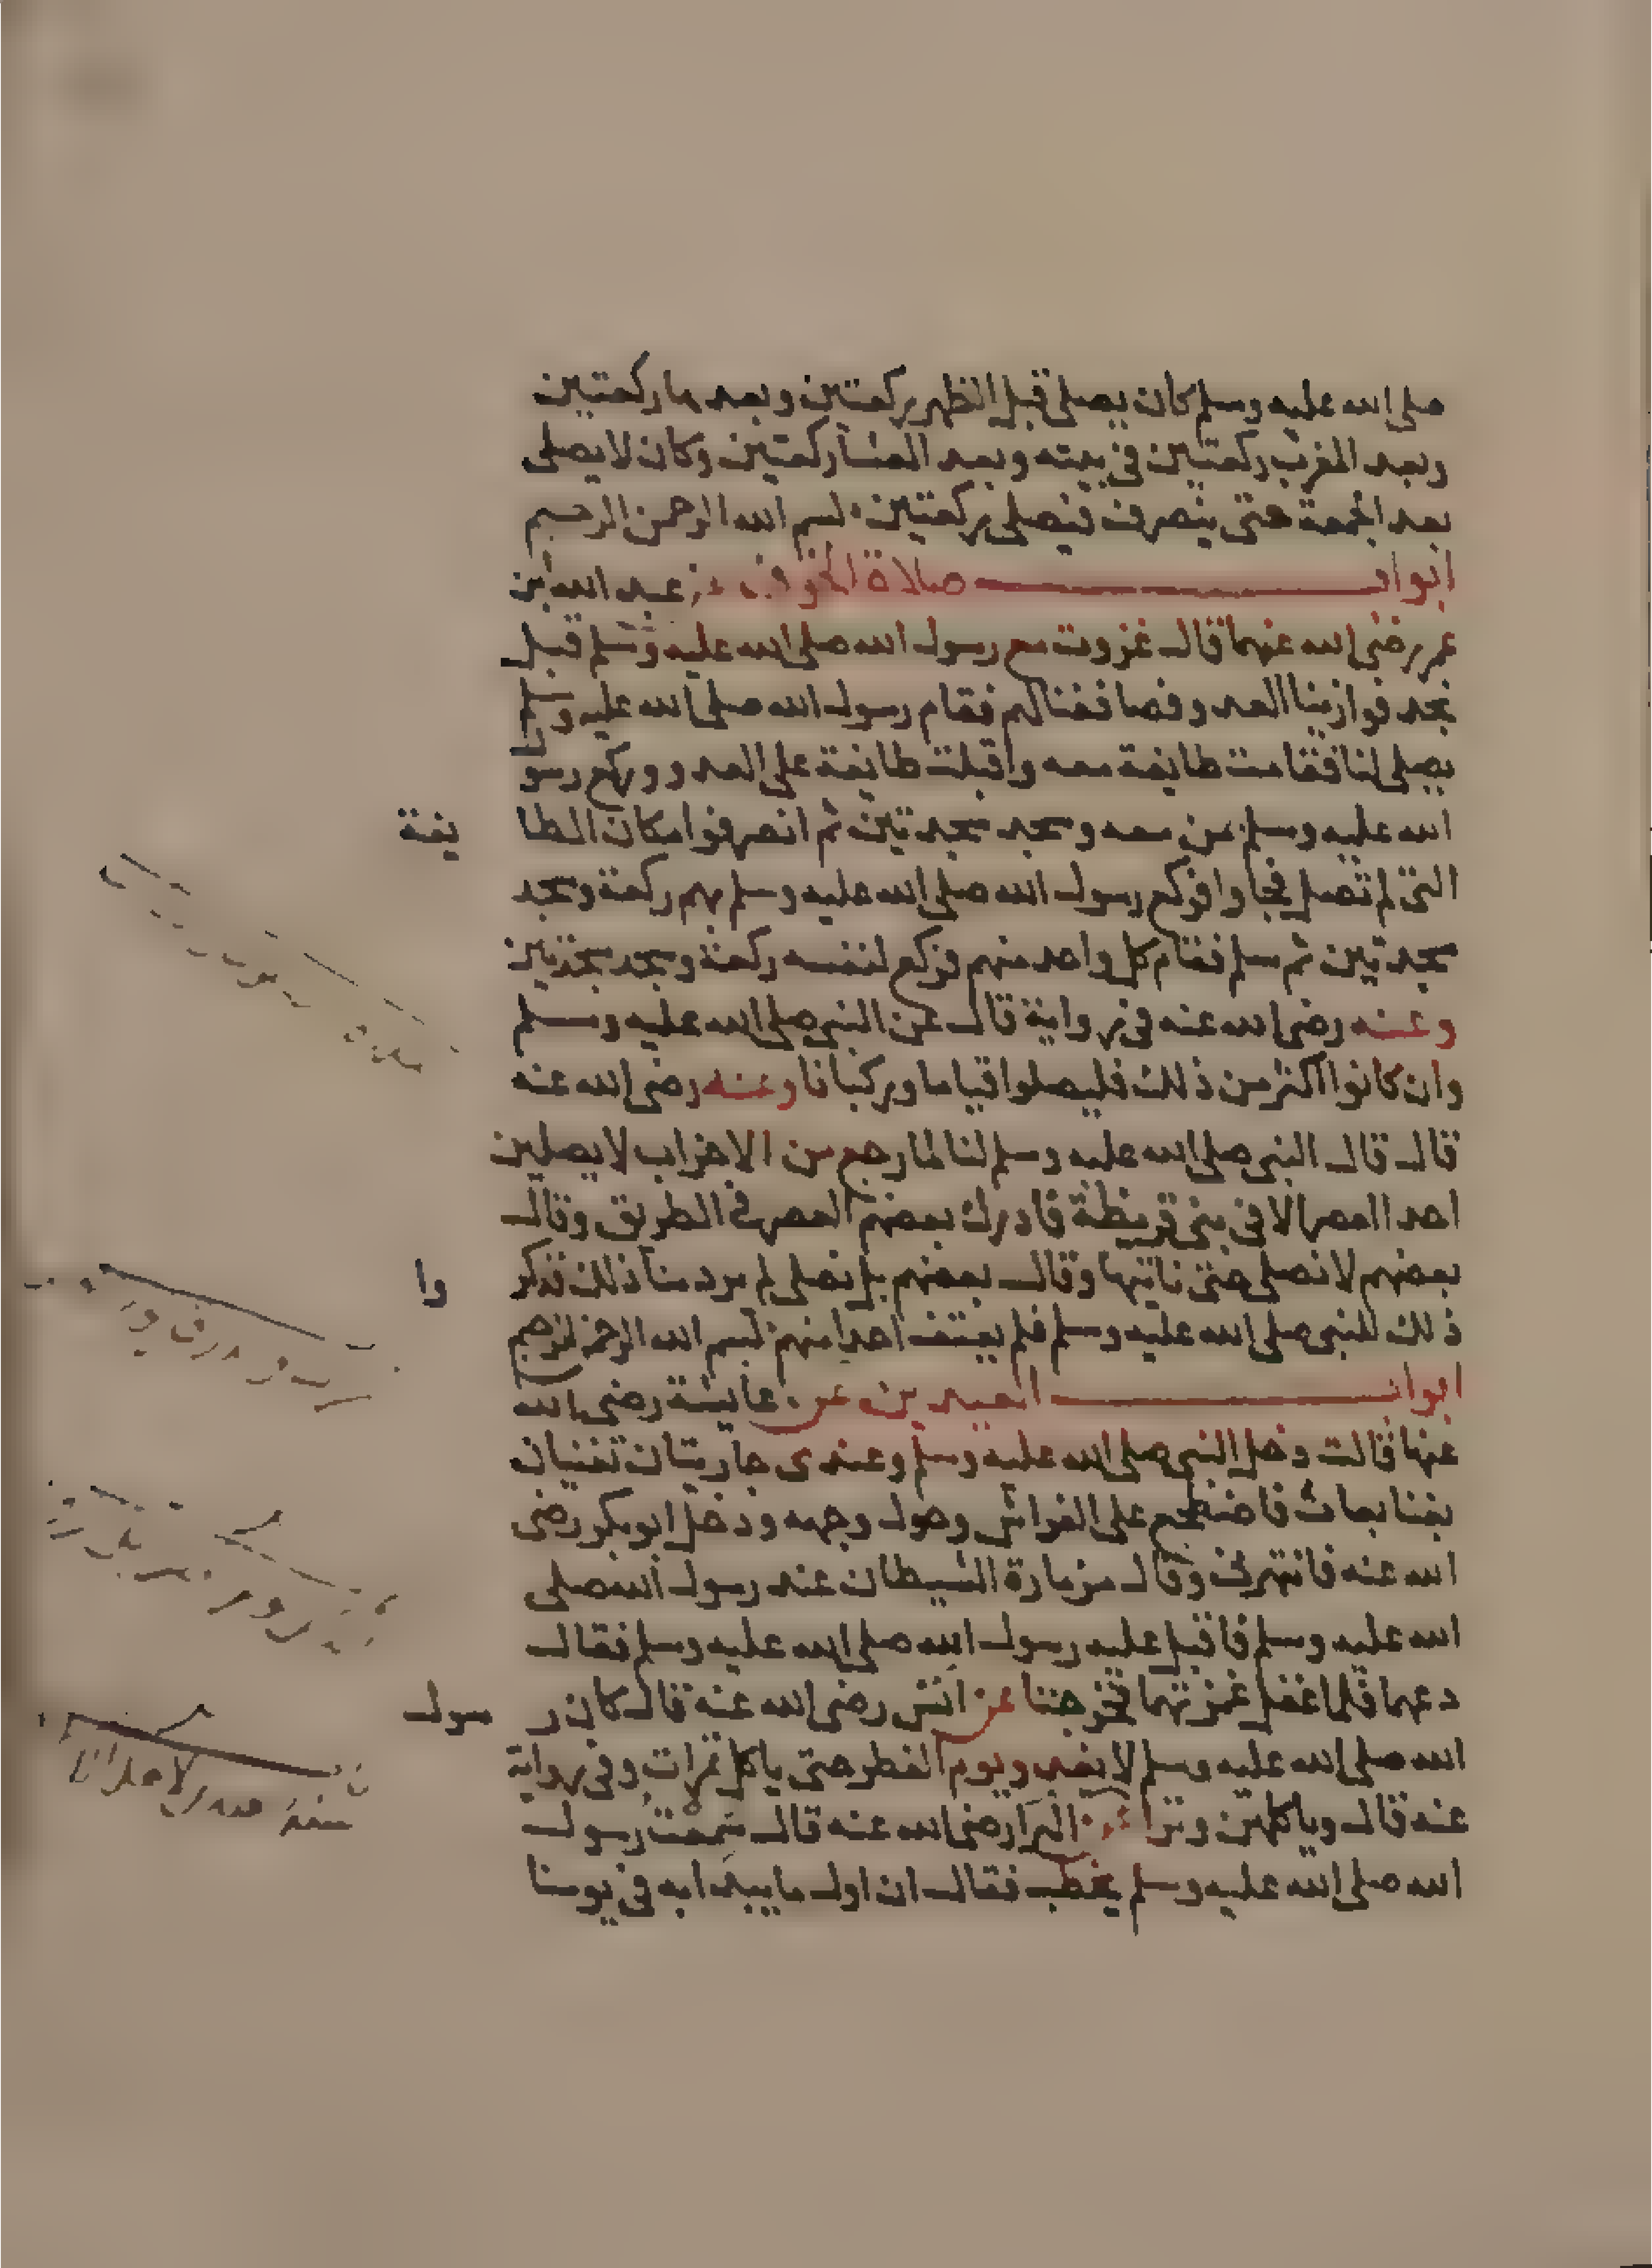 صلى الله عليه وسلم كان يصلى قبل الظهر ركعتين وبعدها ركعتين
وبعد المغرب ركعتين فى بيته وبعد العشا ركعتين وكان لا يصلى
بعد الجمعة حتى ينصرف فيصلى ركعتين بسم الله الرحمن الرحيم
ابواب صلاة الخوف عن عبد الله بن
عمر رضى الله عنهما قال غزوت مع رسول الله صلى الله عليه وسلم قبل
نجد فوازينا العدو فصاففنا لهم فقام رسول الله صلى الله عليه وسلم
يصلى لنا فقامت طايفة معه واقبلت طايفة على العدو وركع رسو
الله عليه وسلم من معه وسجد سجدتين ثم انصرفوا مكان الطا يفة
التى لم تصل فجاوا فركع رسول الله صلى الله عليه وسلم بهم ركعة وسجد
سجدتين ثم سلم فقام كل واحد منهم فركع لنفسه ركعة وسجد سجدتين
وعنه رضى الله عنه فى رواية قال عن النبى صلى الله عليه وسلم
وان كانوا اكثر من ذلك فليصلوا قياما وركبانا وعنه رضى الله عنه
قال قال النبى صلى الله عليه وسلم لنا لما رجع من الاحزاب لا يصلين
احد العصر الا فى بنى قريظة فادرك بعضهم العصر فى الطريق وقال
بعضهم لا نصلى حتى ناتيها وقال بعضهم بل نصلى لم يرد منا ذلك فذكر وا
ذلك للنبى صلى الله عليه وسلم فلم يعنف احدا منهم بسم الله الرحمن الرحيم
ابواب العيدين عن عايشة رضى الله
عنها قالت دخل النبى صلى الله عليه وسلم وعندى جاريتان تغنيان
بغنا بعاث فاضطجع على الفراش وحول وجهه ودخل ابو بكر رضى
الله عنه فانتهرنى وقال مزمارة الشيطان عند رسول الله صلى
الله عليه وسلم فاقبل عليه رسول الله صلى الله عليه وسلم فقال
دعهما فلما غفل غمزتهما فخرجتا عن انس رضى الله عنه قال كان ر سول
الله صلى الله عليه وسلم لا يغدو يوم الفطر حتى ياكل تمرات وفى رواية
عنه قال وياكلهن وترا عن البرا رضى الله عنه قال سمعت رسول
الله صلى الله عليه وسلم يخطب فقال ان اول ما يبدا به فى يومنا